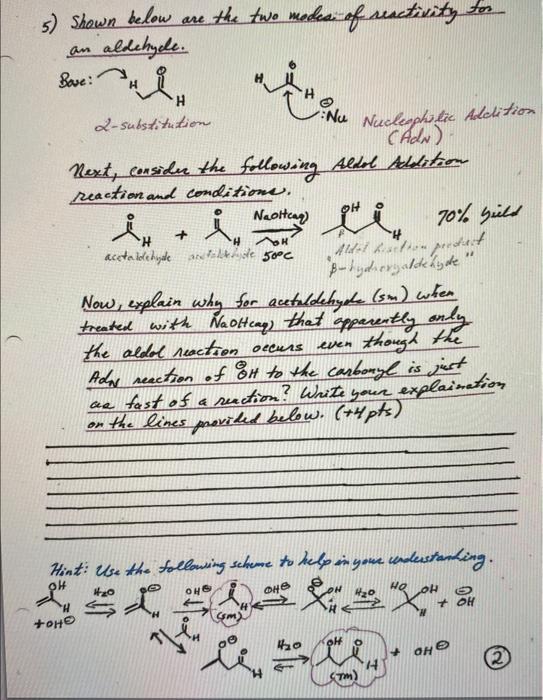 5) Shown below are the two modes of reactivity for
an aldehyde.
Base: H O H
H O H
⊖:Nu
α-substitution
Nucleophilic Addition
(AdN).
Next, consider the following Aldol Addition
reaction and conditions.
O H + O H NaOH(aq) OH O H 70% yield
OH
acetaldehyde acetaldehyde 50°C
β
Aldol Reaction product
"β-hydroxyaldehyde"
Now, explain why for acetaldehyde (sm) when
treated with NaOH(aq) that apparently only
the aldol reaction occurs even though the
AdN reaction of ⊖OH to the carbonyl is just
as fast of a reaction? Write your explaination
on the lines provided below. (+4 pts)
Hint: Use the following scheme to help in your understanding.
OH H H2O O⊖ H OH⊖ O H OH⊖ O⊖ OH H H2O HO OH H + ⊖OH
+OH⊖
(sm)
O H
O⊖ O H H2O OH O H + OH⊖
(TM)
2